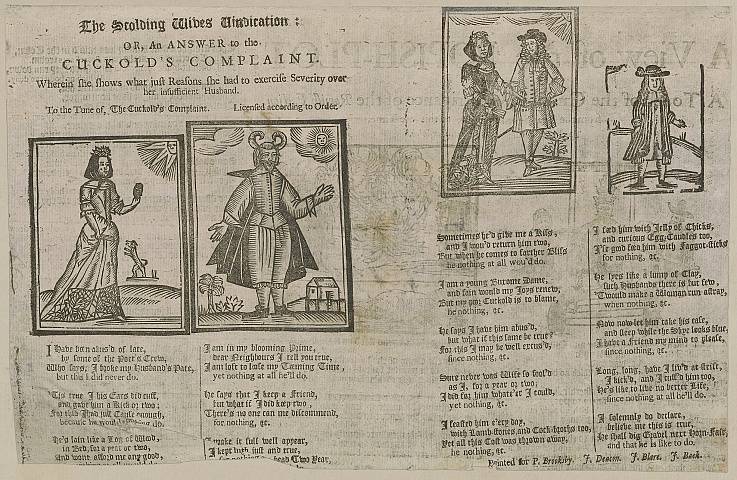 The Scolding Wives Vindication:
OR, An ANSWER to the
CUCKOLD'S COMPLAINT.
Wherein she shows what just Reasons she had to exercise Severity over
her insufficient Husband.
To the Tune of, The Cuckold's Complaint. Licensed according to Order.
I Have been abus'd of late,
by some of the Poet's Crew,
Who says, I broke my Husband's Pate,
but this I did never do.
'Tis true I his Ears did cuff,
and gave him a Kick or two;
For this I had just Cause enough,
because he would nothing do.
He's lain like a Log of Wood,
in Bed, for a year or two,
And wont afford me any good,
I am in my blooming Prime,
dear Neighbours I tell you true,
I am loth to lose my Teeming Time,
yet nothing at all he'll do.
He says that I keep a Friend,
but what if I did keep two,
There's no one can me discommend,
for nothing, &c.
make it full well appear,
I kept just and true,
Two Year,
Sometimes he'd give me a Kiss,
and I wou'd return him two,
But when he comes to farther Bliss
he nothing at all wou'd do.
I am a young Buxome Dame,
and fain would my Joys renew,
But my poor Cuckold is to blame,
he nothing, &c.
He says I have him abus'd,
but what if this same be true?
For this I may be well excus'd,
since nothing, &c.
Sure never was Wife so fool'd
as I, for a year or two;
I did for him whate'er I could,
yet nothing, &c.
I feasted him e'ery day,
with Lamb-stones, and Cock-broths too,
Yet all this Cost was thrown away,
he nothing, &c.
I feed him with Jelly of Chicks,
and curious Egg-Caudles too,
I'se good feed him with Faggot-sticks
for nothing, &c.
He lyes like a lump of Clay,
such Husbands there is but few,
'Twould make a Woman run astray,
when nothing, &c.
Now now let him take his ease,
and sleep while the Skye looks blue,
I have a Friend my mind to please,
since nothing, &c.
Long, long, have I liv'd at strife,
I kick'd, and I cuff'd him too,
He's like to live no better Life,
since nothing at all he'll do.
I solemnly do declare,
believe me this is true,
He shall dig Gravel next Horn-Fair,
and that he is like to do.
Printed for P. Brooksby, J. Deacon, J. Blare, J. Back.